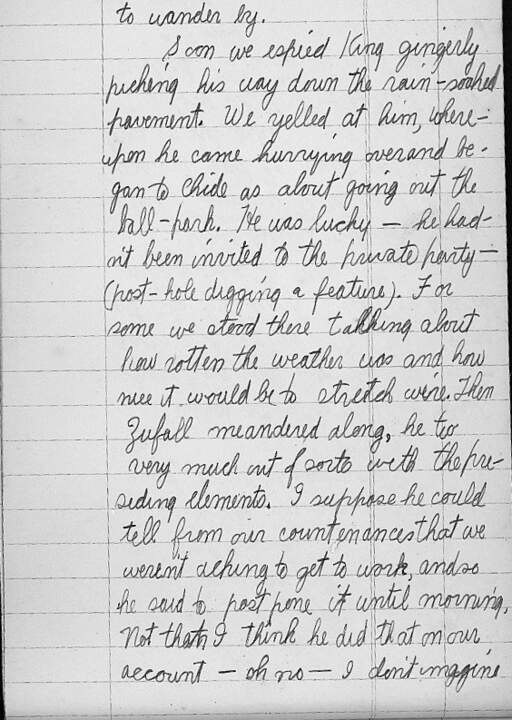 to wander by.
Soon we espied King gingerly
picking his way down the rain-soaked
pavement. We yelled at him, where-
upon he came hurrying over and be-
gan to chide as about going out the
ball-park. He was lucky — he had-
n't been invited to the private party —
(post-hole digging a feature). For
some we stood there talking about
how rotten the weather was and how
nice it would be to stretch wire. Then
Zufall meandered along, he too
very much out of sorts with the pre-
siding elements. I suppose he could
tell from our countenances that we
weren't aching to get to work, and so
he said to postpone it until morning.
Not that I think he did that on our
account — oh no — I don't imagine